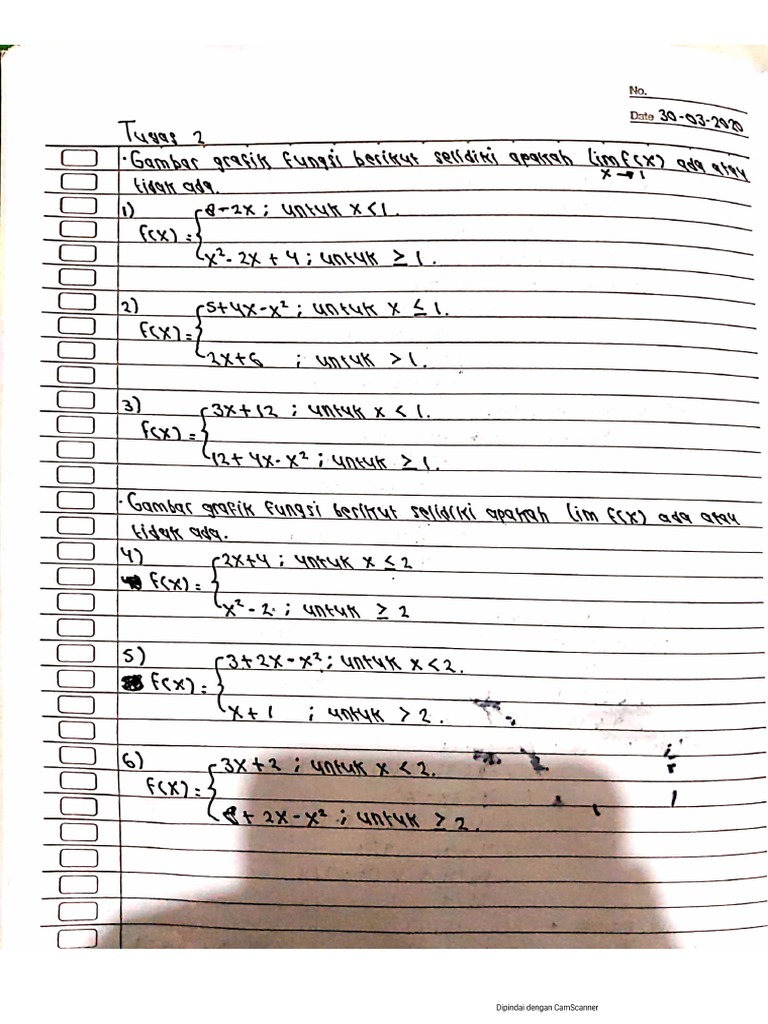 No.
Date 30-03-2020
Tugas 2
· Gambar grafik fungsi berikut selidiki apakah lim f(x) ada atau
x → 1
tidak ada.
1)
8-2x ; untuk x < 1.
f(x) = {
x² - 2x + 4 ; untuk ≥ 1.
2)
5+4x-x² ; untuk x ≤ 1.
f(x) = {
2x+6 ; untuk > 1.
3)
3x+12 ; untuk x < 1.
f(x) = {
12+4x-x² ; untuk ≥ 1.
· Gambar grafik fungsi berikut selidiki apakah lim f(x) ada atau
tidak ada.
4)
2x+4 ; untuk x ≤ 2
f(x) = {
x² - 2 ; untuk ≥ 2
5)
3+2x-x² ; untuk x < 2.
f(x) = {
x+1 ; untuk > 2.
6)
3x+2 ; untuk x < 2.
f(x) = {
8+2x-x² ; untuk ≥ 2.
Dipindai dengan CamScanner